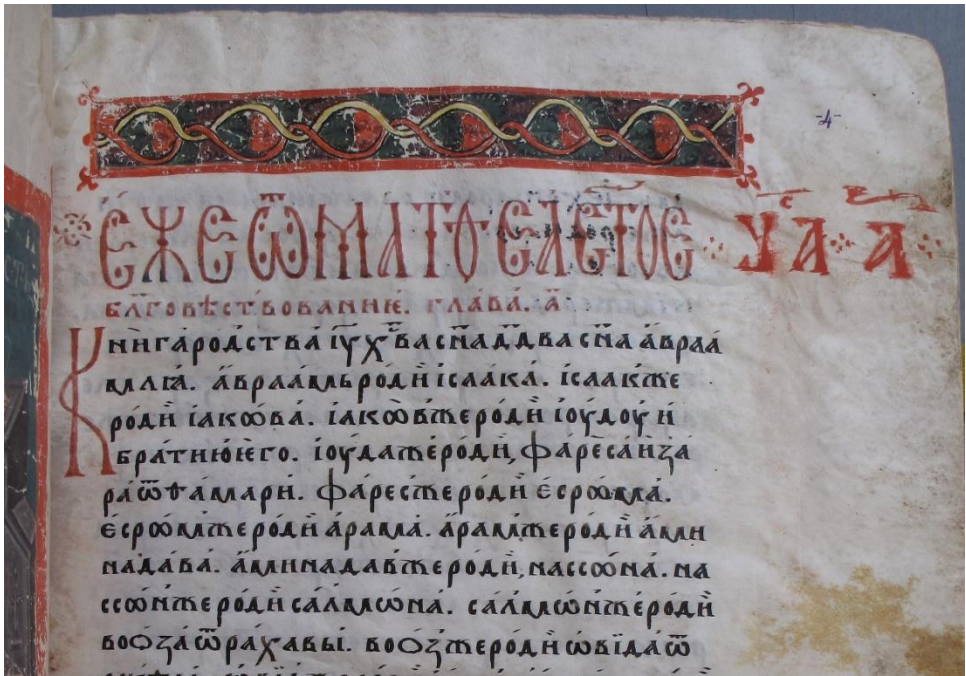 -4-
є́жеѿматѳелстое у҃а а҃
бл҃говѣствованнїе. глава. а҃
Кни́гаро́дства і҃ух҃васн҃ада҃двасн҃а а́враа́
мла́. а́враа́мьроди̏ ісаа́ка. ісаа́кже
роди̏ іа́кѡва. іа́кѡвжероди̏ іо́удоу и
бра́тиюіе́го. іо́удажеро́ди, фаре́са и́за
ра́ ѿѳа́мари. фаре́сжероди̏ є́срѡма.
є́срѡмжероди̏ а́рама. а́рамжероди̏ а́ми
нада́ва. а́минадавжероди̏, нассѡ́на. на
ссѡ́нжероди̏ са́лмѡна. са́лмѡнжероди̏
воѻза ѿра́хавы. воѻзжероди̏ ѡви́да ѿ